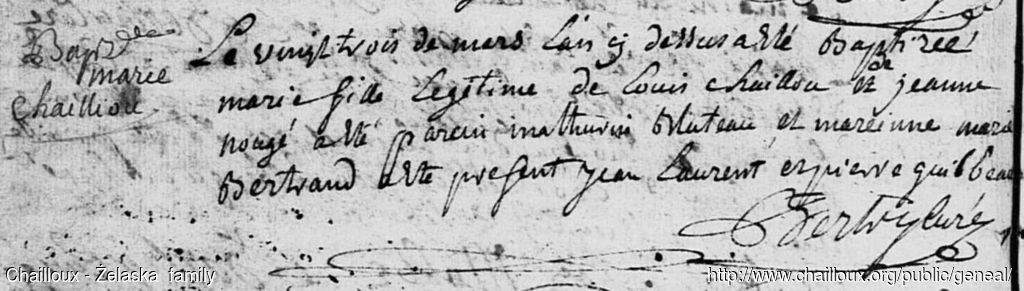 Bap de
marie
chailliou
Le vingt trois de mars lan cy dessus a esté Baptizeé
marie fille Legitime de Louis chaillou et de jeanne
nougé a esté parein mathurin Bluteau et mareinne marie
Bertrand a esté present jean Laurent et pierre guilbeau
curé
Chailloux - Želaska family
http://www.chailloux.org/public/geneal/